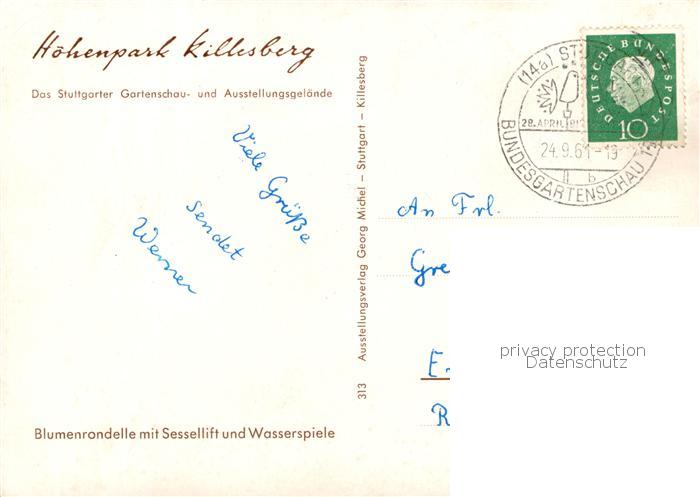 Höhenpark Killesberg
Das Stuttgarter Gartenschau- und Ausstellungsgelände
Viele Grüße
sendet
Werner
Blumenrondelle mit Sessellift und Wasserspiele
313 Ausstellungsverlag Georg Michel – Stuttgart – Killesberg
(14a) ST
28. APRIL
24.9.61-19
BUNDESGARTENSCHAU
DEUTSCHE BUNDESPOST
10
An Frl.
Gre
E.
R
privacy protection
Datenschutz